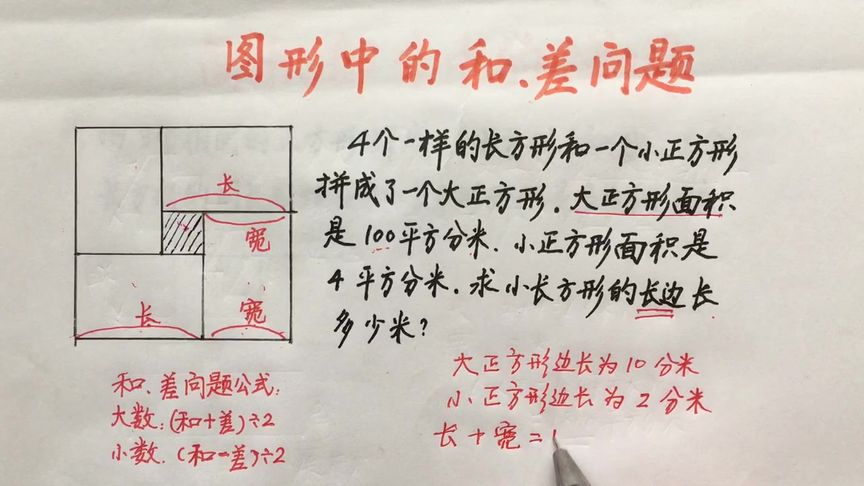 图形中的和、差问题
4个一样的长方形和一个小正方形
拼成了一个大正方形.大正方形面积
是100平方分米.小正方形面积是
4平方分米.求小长方形的长边长
多少米?
长
宽
长
宽
和、差问题公式:
大数:(和+差)÷2
小数.(和-差)÷2
大正方形边长为10分米
小正方形边长为2分米
长+宽=1